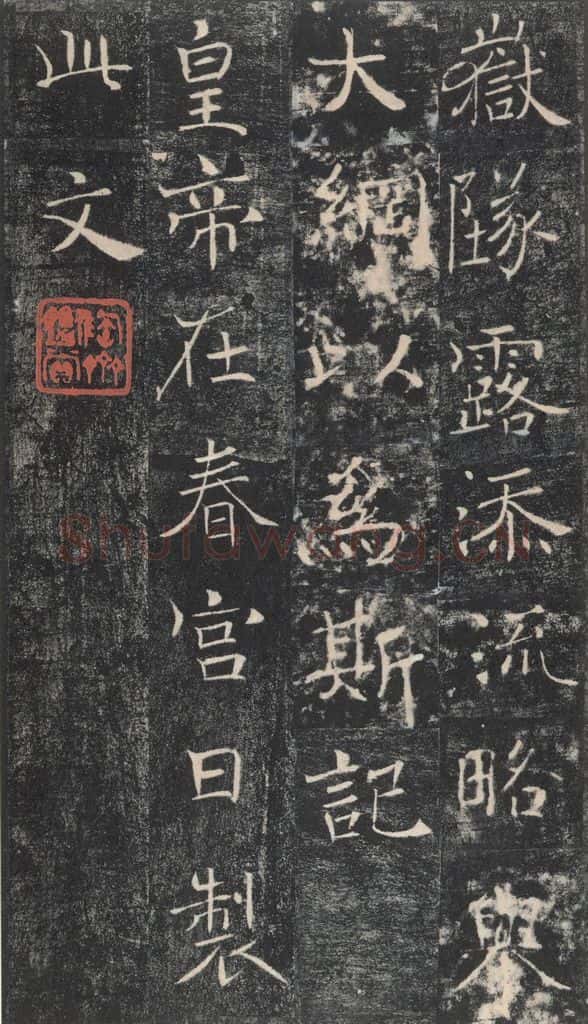 嶽墜露添流略舉
大綱以為斯記
皇帝在春宮日製
此文
Shufawang.CN